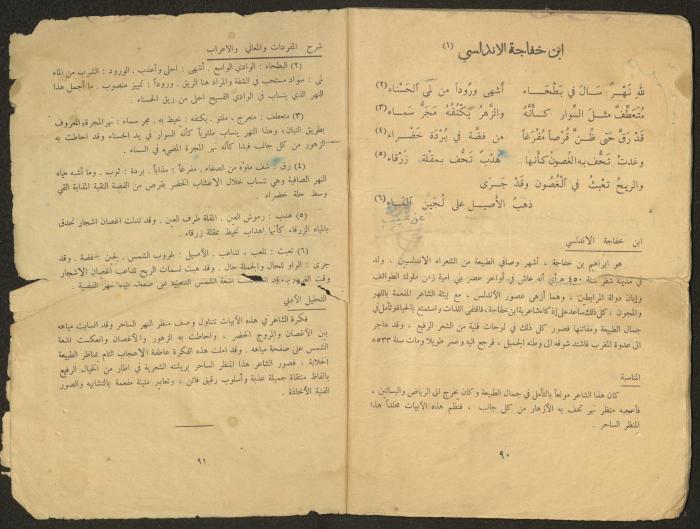 ابن خفاجة الاندلسي (١)
لله نَهْرٌ سَالَ في بَطْحَاء أشهى وُروداً من لَمَى الحَسْناء (٢)
مُتَعَطِّفٌ مثلَ السِّوار كَأَنَّهُ والزَّهرُ يَكْنُفُهُ مَجَرُّ سَماء (٣)
قدْ رَقَّ حتَّى ظُنَّ قُرصاً مُفْرَغاً من فضَّة في بُرْدَة خَضْراء (٤)
وغدتْ تَحُفُّ به الغصونُ كأنها هُدْبٌ تَحُف بمقْلَة زَرْقاء (٥)
والريحُ تعْبثُ في الْغُصُون وقدْ جَرَى
ذهبُ الأصيل على لُجَيْن الماء (٦)
ابن خفاجة الاندلسي
هو ابراهيم بن خفاجة ، أشهر وصافي الطبيعة من الشعراء الاندلسيين ، ولد
في مدينة شقر سنة ٤٥٠ هـ أي أنه عاش في أواخر عصر بني امية زمن ملوك الطوائف
وإبان دولة المرابطين ، وهما أزهى عصور الأندلس ، مع بيئة الشاعر المفعمة باللهو
والمجون ، كل ذلك ساعد على إذكاء شاعرية ابن خفاجة ، فاقتفى اللذات واستمتع بالحياة وتأمل في
جمال الطبيعة ومفاتنها فصور كل ذلك في لوحات فنية من الشعر الرفيع ، وقد هاجر
الى عدوة المغرب فاشتد شوقه الى وطنه الجميل ، فرجع اليه وعمر طويلا ومات سنة ٥٣٣ هـ
المناسبة
كان هذا الشاعر مولعاً بالتأمل في جمال الطبيعة وكان يخرج الى الرياض والبساتين ،
فأعجبه منظر نهر تحف به الأزهار من كل جانب ، فنظم هذه الأبيات مخلداً هذا
المنظر الساحر .
٩٠
شرح المفردات والمعاني والاعراب
(٢) البطحاء : الوادي الواسع . أشهى : احلى وأعذب . الورود : الشرب من الماء
لمى : سواد مستحب في الشفة والمراد هنا الريق . وروداً : تمييز منصوب . ما أجمل هذا
النهر الذي ينساب في الوادي الفسيح احلى من ريق الحسناء .
(٣) متعطف : متعرج ، ملتو . يكنفه : يحيط به . مجر سماء : نهر المجرة المعروف
بطريق التبان ؛ وهذا النهر ينساب ملتوياً كأنه السوار في يد الحسناء وقد احاطت به
الزهور من كل جانب فبدا كأنه نهر المجرة المضيء في السماء .
(٤) رق : شف ماؤه من الصفاء . مفرغاً : مذاباً . بردة : ثوب . وما أشبه مياه
النهر الصافية وهي تنساب خلال الاعشاب الخضر بقرص من الفضة النقية المذابة القي
وسط حلة خضراء .
(٥) هدب : رموش العين . المقلة طرف العين . وقد تدلت اغصان اشجار تحدق
بالمياه الزرقاء كأنها اهداب تحيط بمقلة زرقاء .
(٦) تعبث : تلعب ، تداعب . الأصيل : غروب الشمس . لجين : فضة . وقد
جرى : الواو للحال والجملة حال . وقد هبت نسمات الريح تداعب اغصان الاشجار
وقت الغروب وقد اشعة الشمس الذهبية على صفحة مياه النهر الفضية .
التحليل الأدبي
فكرة الشاعر في هذه الأبيات تتناول وصف منظر النهر الساحر وقد انسابت مياهه
بين الأغصان والمروج الخضر ، واحاطت به الزهور والأغصان وانعكست اشعة
الشمس على صفحة مياهه . وقد املت هذه الفكرة عاطفة الاعجاب التام بمناظر الطبيعة
الخلابة ، فصور الشاعر هذا المنظر الساحر بريشته الشعرية في اطار من الخيال الرفيع
بالفاظ منتقاة جميلة عذبة وأسلوب رقيق فاتن ، وتعابير متينة مفعمة بالتشابيه والصور
الفنية الأخاذة .
٩١